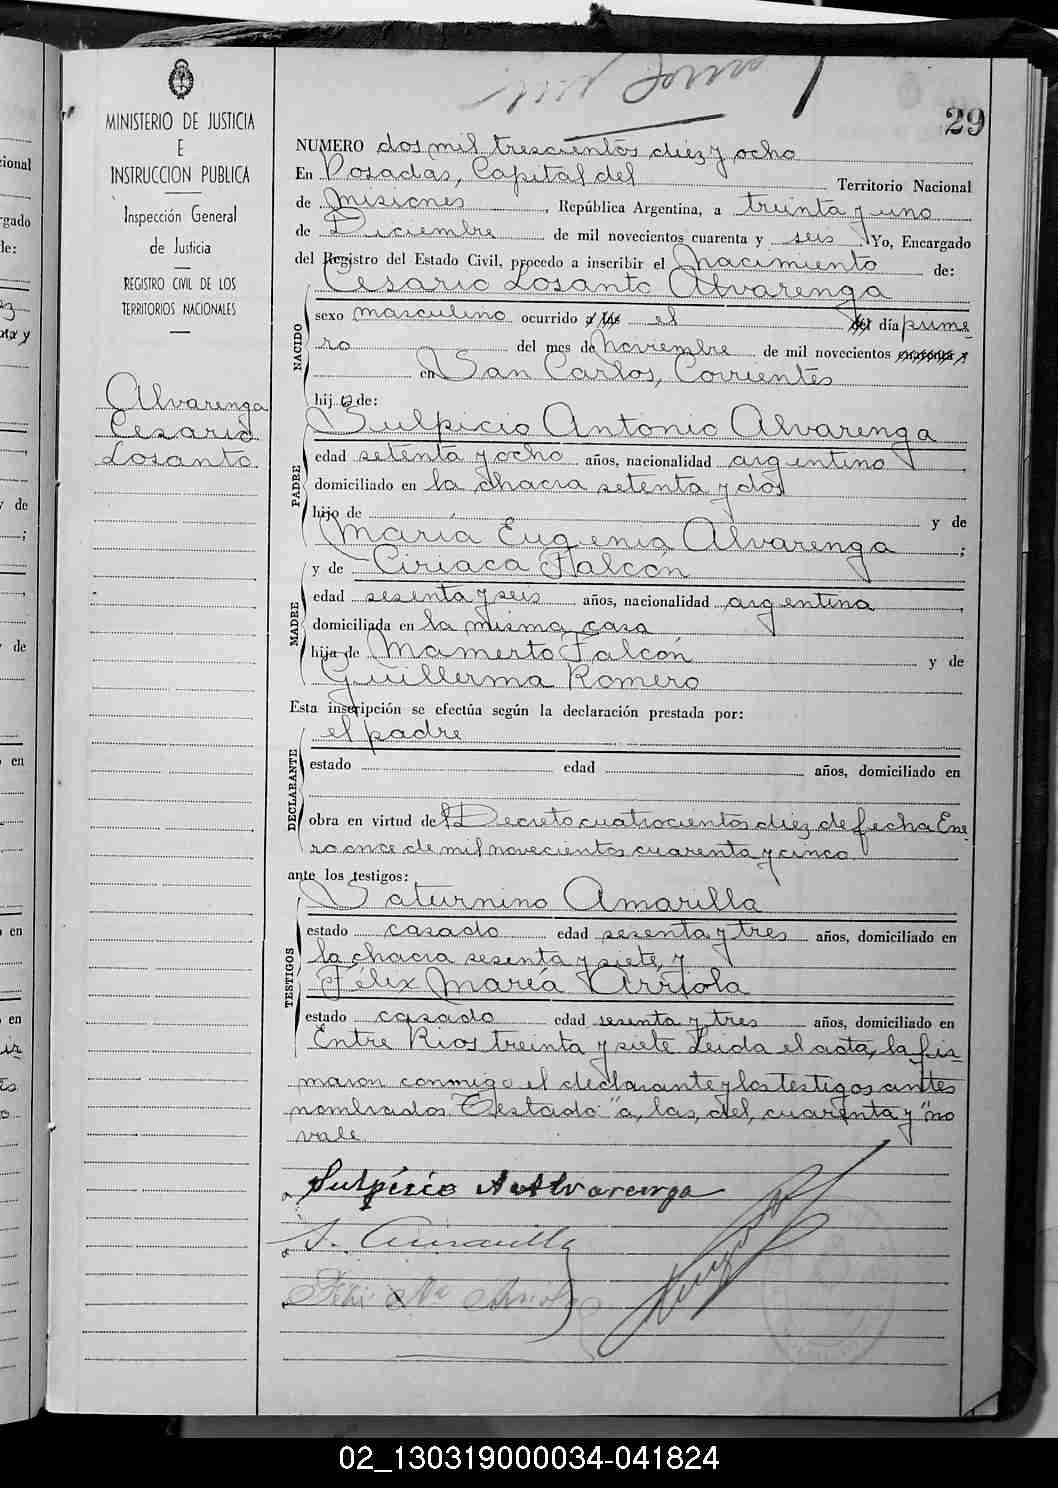 29
MINISTERIO DE JUSTICIA
E
INSTRUCCION PUBLICA
Inspección General
de Justicia
REGISTRO CIVIL DE LOS
TERRITORIOS NACIONALES
Alvarenga
Cesario
Losanto
NUMERO dos mil trescientos diez y ocho
En Posadas, Capital del Territorio Nacional
de Misiones, República Argentina, a treinta y uno
de Diciembre de mil novecientos cuarenta y seis. Yo, Encargado
del Registro del Estado Civil, procedo a inscribir el Nacimiento de:
NACIDO
Cesario Losanto Alvarenga
sexo masculino ocurrido a las el del día prime
ro del mes de Noviembre de mil novecientos
en San Carlos, Corrientes
hijo de:
PADRE
Sulpicio Antonio Alvarenga
edad setenta y ocho años, nacionalidad argentino
domiciliado en la chacra setenta y dos
hijo de y de
María Eugenia Alvarenga ;
MADRE
y de Ciriaca Falcón
edad sesenta y seis años, nacionalidad argentina
domiciliada en la misma casa
hija de Mamerto Falcón y de
Guillerma Romero
Esta inscripción se efectúa según la declaración prestada por:
DECLARANTE
el padre
estado edad años, domiciliado en
obra en virtud del Decreto cuatrocientos diez de fecha Ene
ro once de mil novecientos cuarenta y cinco
ante los testigos:
TESTIGOS
Saturnino Amarilla
estado casado edad sesenta y tres años, domiciliado en
la chacra sesenta y siete, y
Félix María Arriola
estado casado edad sesenta y tres años, domiciliado en
Entre Ríos treinta y siete Leida el acta, la fir
maron conmigo el declarante y los testigos antes
nombrados Testado "a, las, del, cuarenta y" no
vale
Sulpicio A Alvarenga
S. Amarilla
02_130319000034-041824